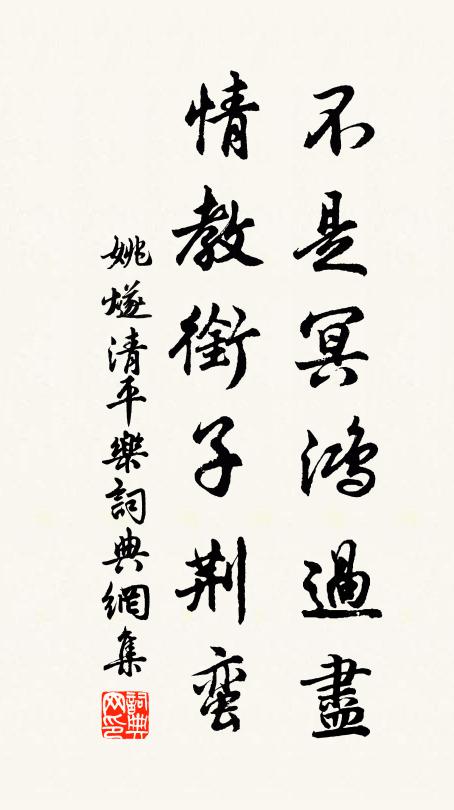 不是冥鸿過盡
情教銜子荆蛮
姚燧清平樂詞典網集
詞典网印